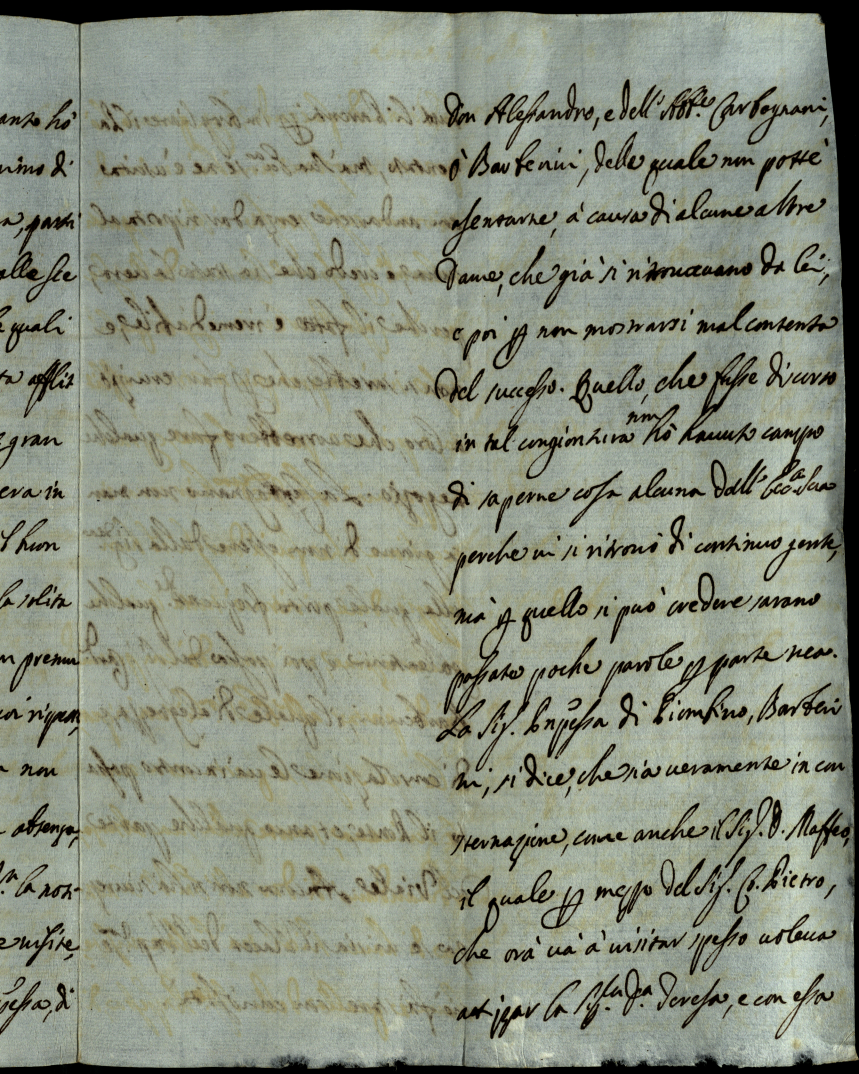 anto hò
nimo di
a, parti
alla sce
e quali
ta afflit
gran
era in
l buon
la solita
n premu
a non
absenza,
la noti
e visite,
pessa, di
Don Alessandro, e dell' Abb.e Carbognani,
ò Barberini, delle quale non pottè
esentarne, à causa di alcune altre
Dame, che già si ritrovavano da lei,
e poi p non mostrarsi mal contenta
del successo. Quello, che fusse discorso
in tal congiontura non hò havuto campo
di saperne cosa alcuna dall' Ecc.a Sua
perche vi si ritrovò di continuo gente,
mà p quello si può credere sarano
passate poche parole p parte sua.
La Sig.ra Pnpessa di Piombino, Barberi
ni, si dice, che sia veramente in con
sternazione, come anche il Sig.r D. Maffeo,
il quale p mezzo del Sig.r C. Pietro,
che orà và à visitar spesso voleva
attizzar la Sig.ra D.a Teresa, e con essa